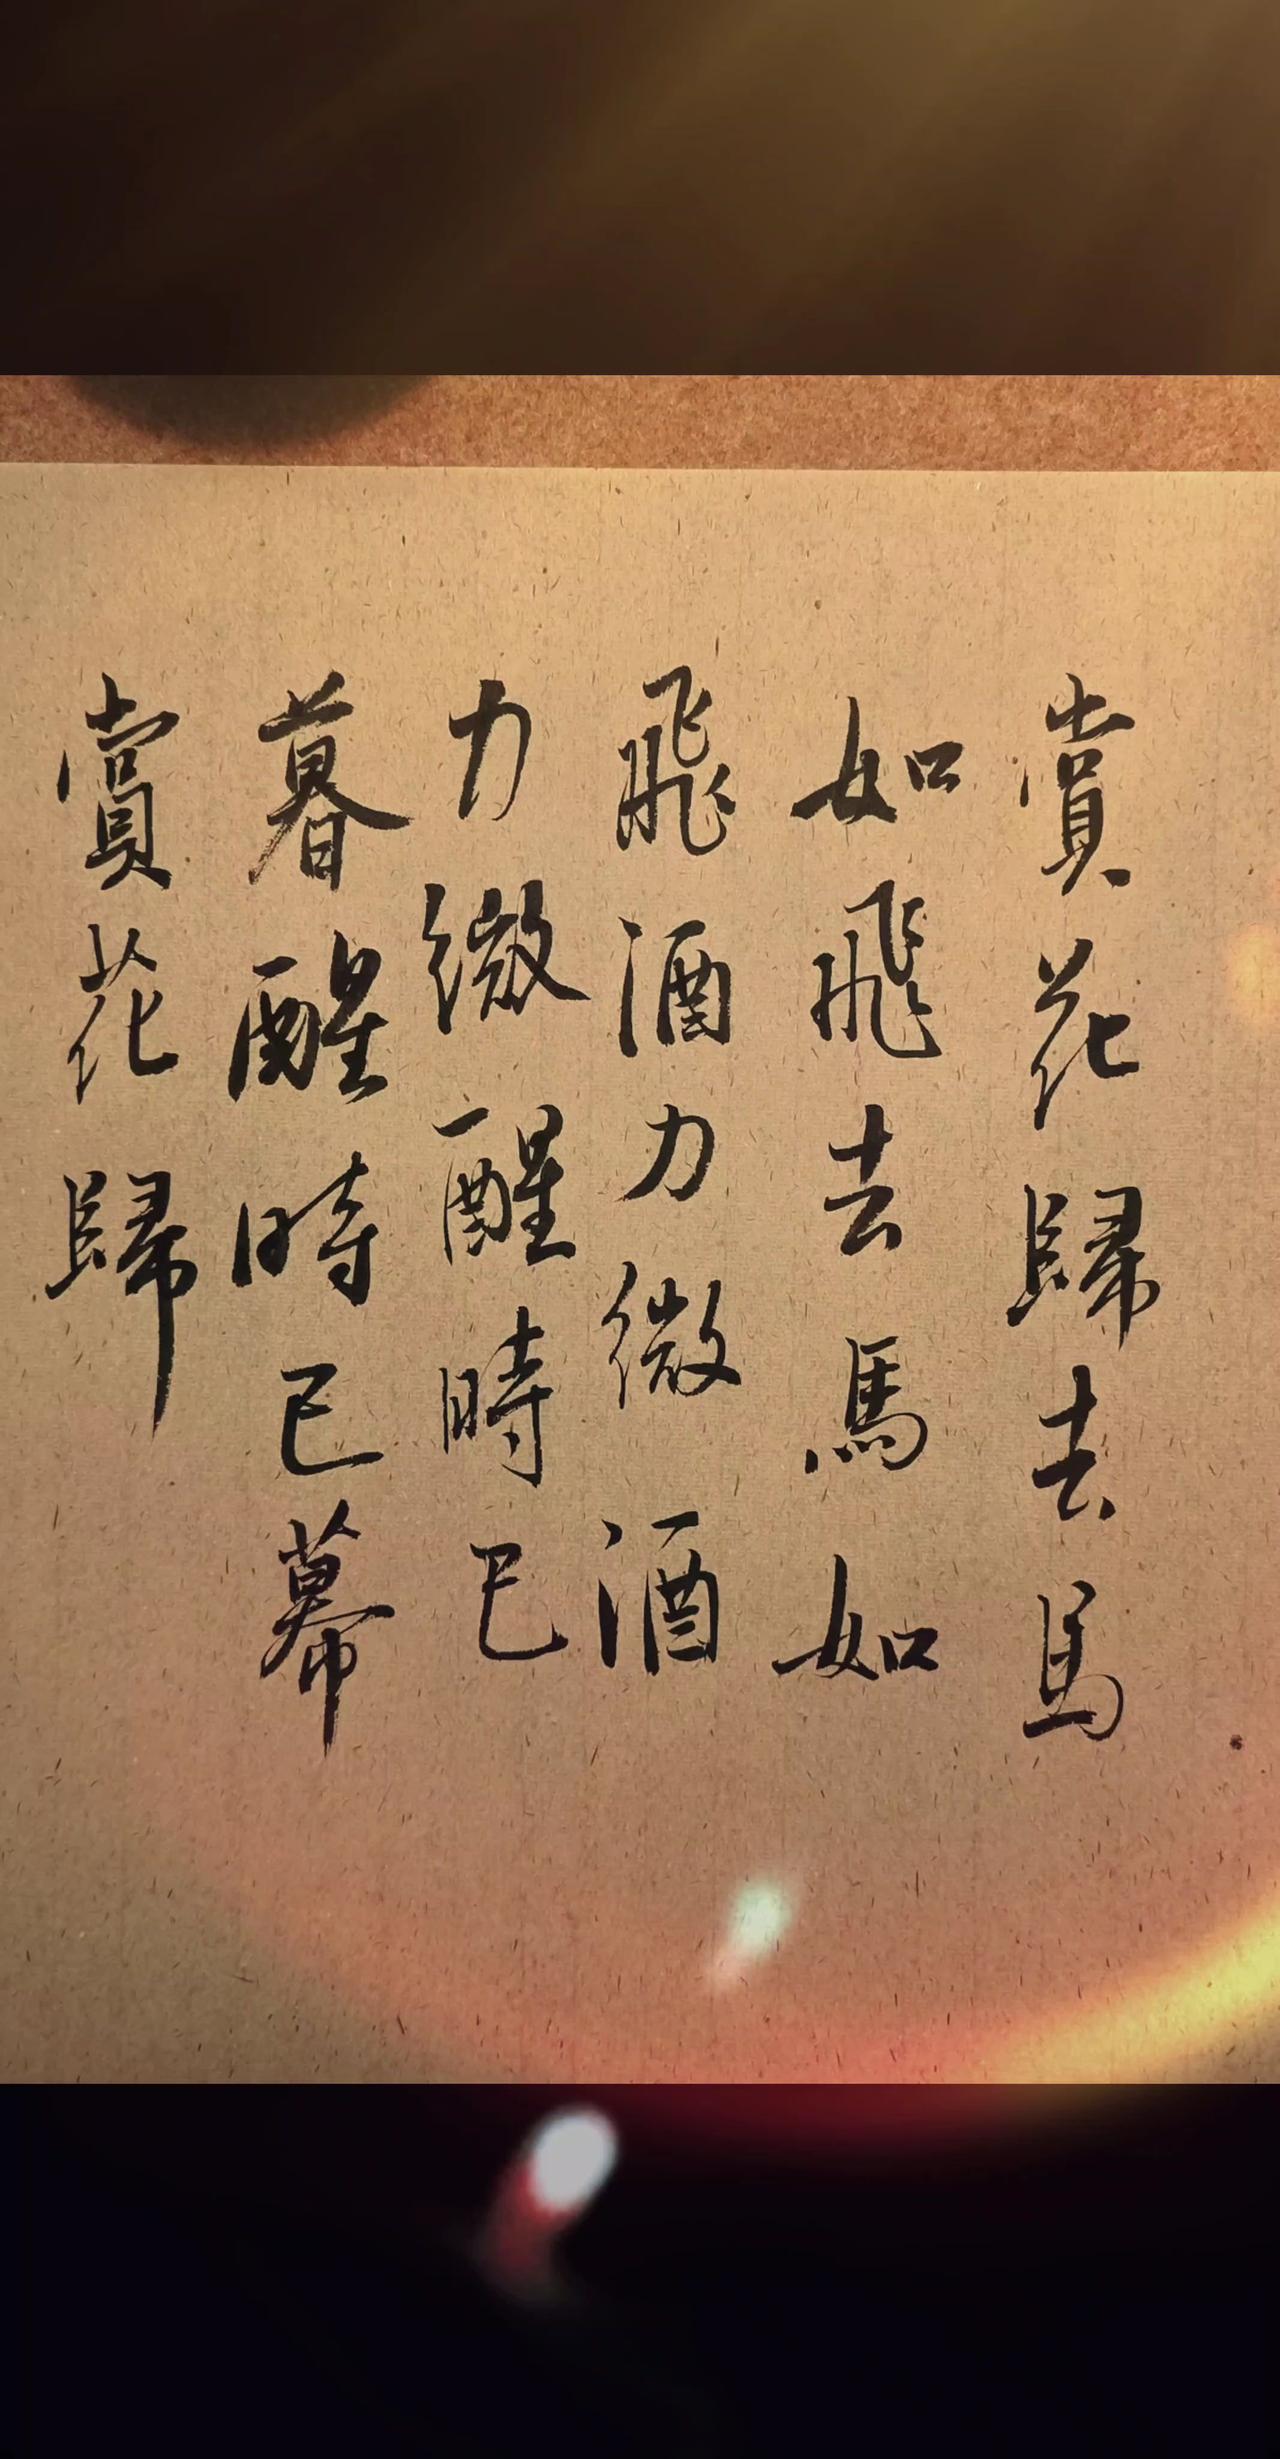 賞花歸去馬
如飛去馬如
飛酒力微酒
力微醒時已
暮醒時已幕
賞花歸